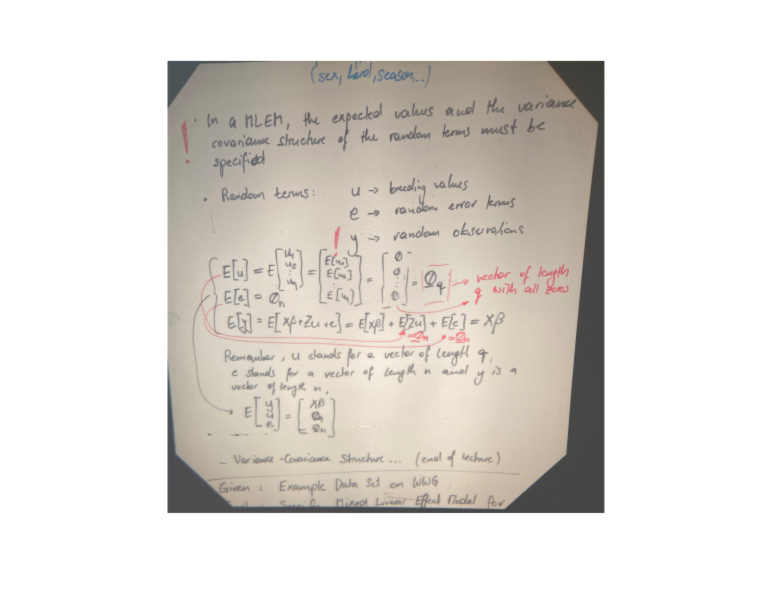 (sex, herd, season...)
! · In a MLEM, the expected values and the variance
covariance structure of the random terms must be
specified
· Random terms: u → breeding values
e → random error terms
y → random observations
E[u] = E[u₁ u₂ ⋮ u_q] = [E[u₁] E[u₂] ⋮ E[u_q]] = [0 0 ⋮ 0] = 0_q → vector of length
q with all zeros
E[e] = 0_n
E[y] = E[Xβ+Zu+e] = E[Xβ] + E[Zu] + E[e] = Xβ
=0_n =0_n
Remember, u stands for a vector of length q,
e stands for a vector of length n and y is a
vector of length n.
E[y u e] = [Xβ 0_q 0_n]
- Variance-Covariance Structure ... (end of lecture)
Given: Example Data Set on WWG
Specify Mixed Linear Effect Model for